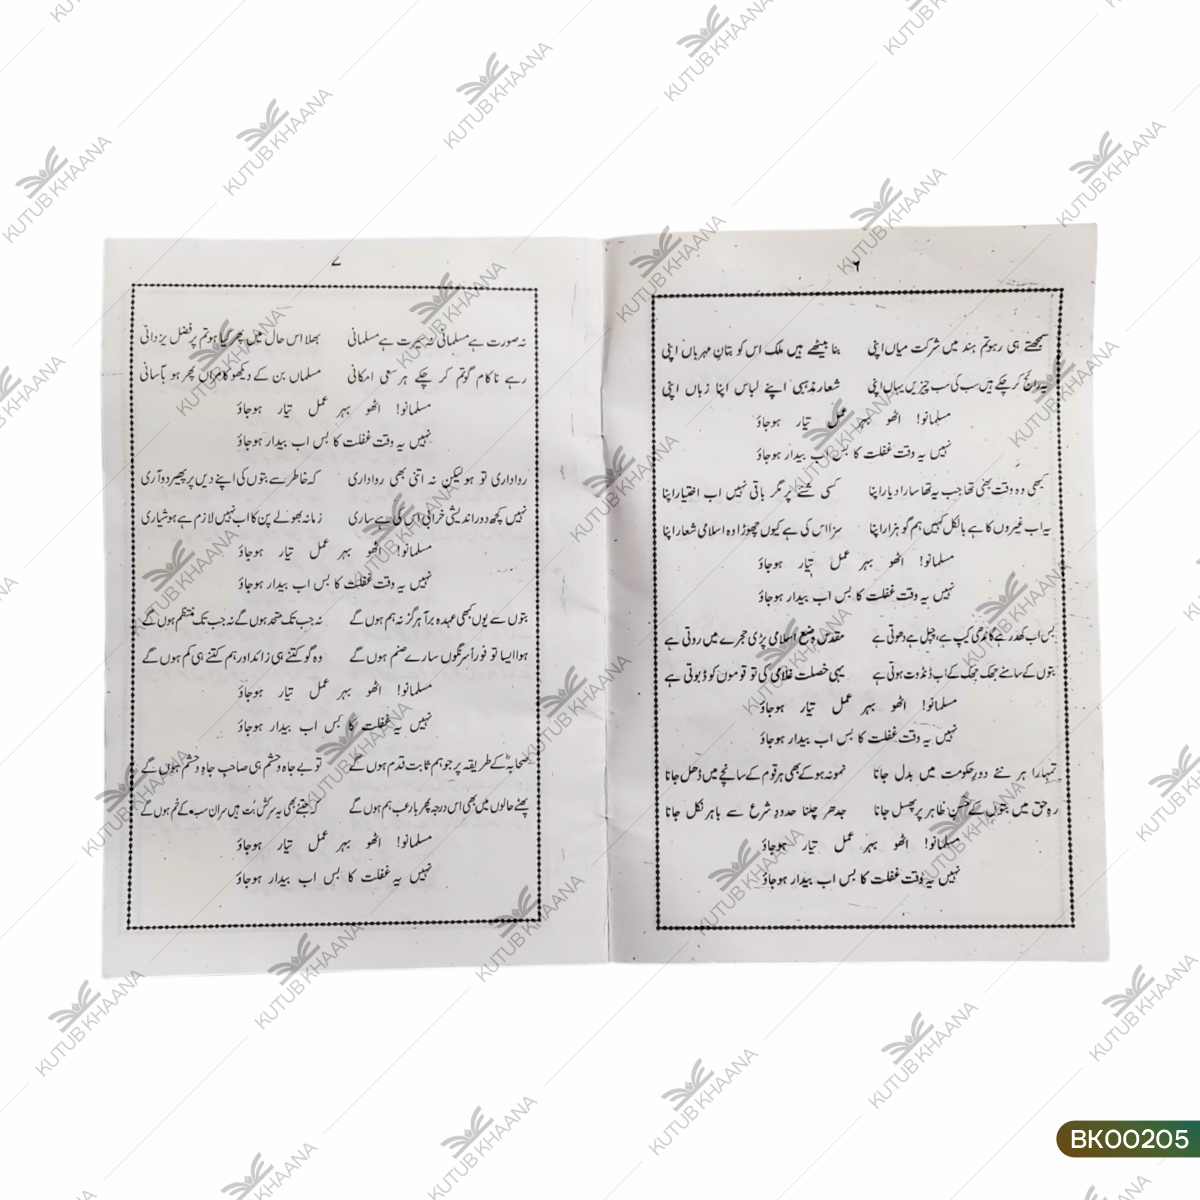 ۶
سمجھتے ہی رہو تم ہند میں شرکت میاں اپنی بنا بیٹھے ہیں ملک اس کو بتانِ مہرباں اپنی
یہ رائج کر چکے ہیں سب کی سب چیزیں یہاں اپنی شعار مذہبی اپنے لباس اپنا زباں اپنی
مسلمانو! اٹھو بہر عمل تیار ہوجاؤ
نہیں یہ وقت غفلت کا بس اب بیدار ہوجاؤ
کبھی وہ وقت بھی تھا جب یہ تھا سارا دیار اپنا کسی شئے پر مگر باقی نہیں اب اختیار اپنا
یہ اب غیروں کا ہے بالکل کہیں ہم گو ہزار اپنا سزا اس کی ہے کیوں چھوڑا وہ اسلامی شعار اپنا
مسلمانو! اٹھو بہر عمل تیار ہوجاؤ
نہیں یہ وقت غفلت کا بس اب بیدار ہوجاؤ
بس اب کھدر ہے گاندھی کیپ ہے، چپل ہے دھوتی ہے مقدس وضع اسلامی پڑی حجرے میں روتی ہے
بتوں کے سامنے جھک جھک کے اب ڈنڈوت ہوتی ہے یہی خصلت غلامی کی تو قوموں کو ڈبوتی ہے
مسلمانو! اٹھو بہر عمل تیار ہوجاؤ
نہیں یہ وقت غفلت کا بس اب بیدار ہوجاؤ
تمہارا ہر نئے دور حکومت میں بدل جانا نمونہ ہو کے بھی ہر قوم کے سانچے میں ڈھل جانا
رہ حق میں بتوں کے حسن ظاہر پر پھسل جانا جدھر چلنا حدودِ شرع سے باہر نکل جانا
مسلمانو! اٹھو بہر عمل تیار ہوجاؤ
نہیں یہ وقت غفلت کا بس اب بیدار ہوجاؤ
۷
نہ صورت ہے مسلمانی نہ سیرت ہے مسلمانی بھلا اس حال میں پھر کیا ہو تم پر فضل یزدانی
رہے ناکام گو تم کر چکے ہر سعی امکانی مسلماں بن کے دیکھو کامراں پھر ہو بآسانی
مسلمانو! اٹھو بہر عمل تیار ہوجاؤ
نہیں یہ وقت غفلت کا بس اب بیدار ہوجاؤ
رواداری تو ہو لیکن نہ اتنی بھی رواداری کہ خاطر سے بتوں کی اپنے دیں پر پھیر دو آری
نہیں کچھ دور اندیشی خرابی اس کی ہے ساری زمانہ بھولے پن کا اب نہیں لازم ہے ہوشیاری
مسلمانو! اٹھو بہر عمل تیار ہوجاؤ
نہیں یہ وقت غفلت کا بس اب بیدار ہوجاؤ
بتوں سے یوں کبھی عہدہ برآ ہرگز نہ ہم ہوں گے نہ جب تک متحد ہوں گے نہ جب تک منتظم ہوں گے
ہوا ایسا تو فوراً سرنگوں سارے صنم ہوں گے وہ گو کتنے ہی زائد اور ہم کتنے ہی کم ہوں گے
مسلمانو! اٹھو بہر عمل تیار ہوجاؤ
نہیں یہ غفلت کا بس اب بیدار ہوجاؤ
صحابہؓ کے طریقہ پر جو ہم ثابت قدم ہوں گے تو بے جاہ و حشم ہی صاحب جاہ و حشم ہوں گے
پھٹے حالوں میں بھی اس درجہ پھر بارعب ہم ہوں گے کہ جتنے بھی یہ سرکش بُت ہیں سران سب کے خم ہوں گے
مسلمانو! اٹھو بہر عمل تیار ہوجاؤ
نہیں یہ غفلت کا بس اب بیدار ہوجاؤ
KUTUB KHAANA
BK00205